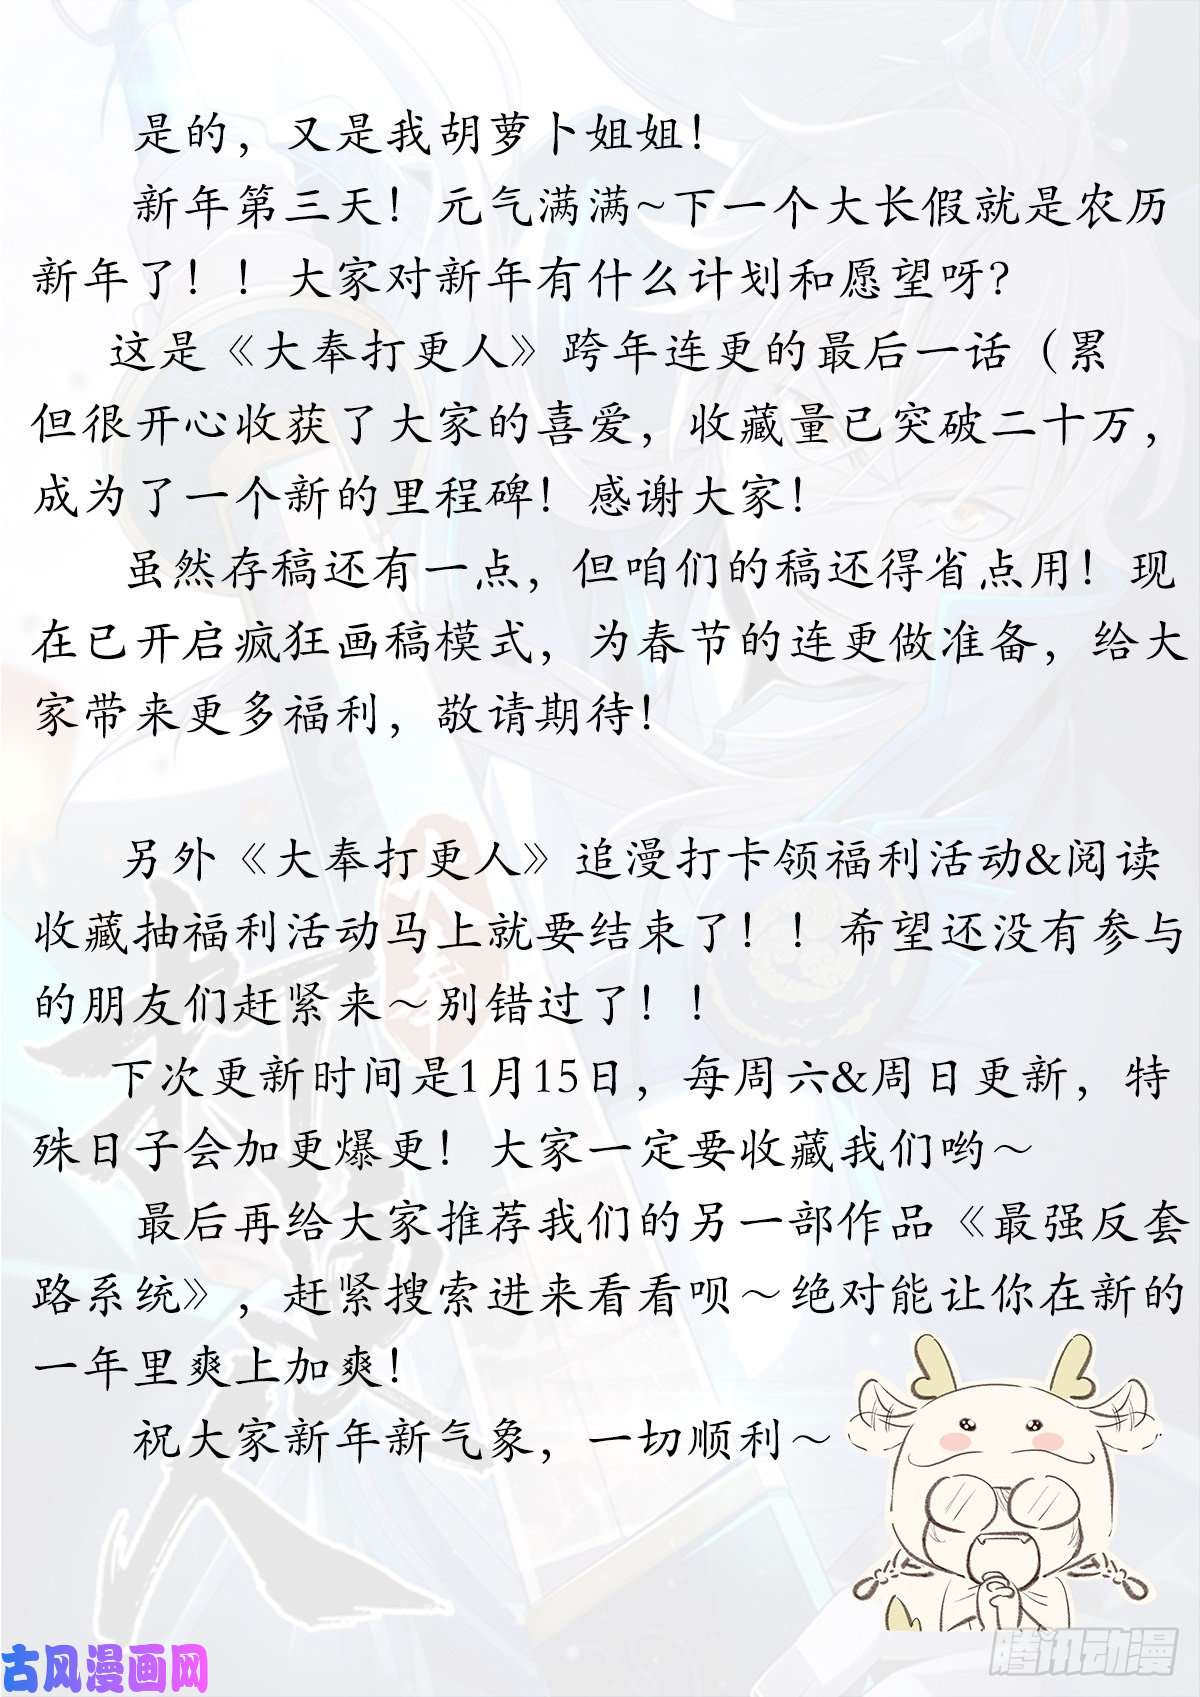 是的，又是我胡萝卜姐姐！
新年第三天！元气满满~下一个大长假就是农历
新年了！！大家对新年有什么计划和愿望呀？
这是《大奉打更人》跨年连更的最后一话（累
但很开心收获了大家的喜爱，收藏量已突破二十万，
成为了一个新的里程碑！感谢大家！
虽然存稿还有一点，但咱们的稿还得省点用！现
在已开启疯狂画稿模式，为春节的连更做准备，给大
家带来更多福利，敬请期待！
另外《大奉打更人》追漫打卡领福利活动&阅读
收藏抽福利活动马上就要结束了！！希望还没有参与
的朋友们赶紧来～别错过了！！
下次更新时间是1月15日，每周六&周日更新，特
殊日子会加更爆更！大家一定要收藏我们哟～
最后再给大家推荐我们的另一部作品《最强反套
路系统》，赶紧搜索进来看看呗～绝对能让你在新的
一年里爽上加爽！
祝大家新年新气象，一切顺利～
大奉
打更人
古风漫画网
腾讯动漫